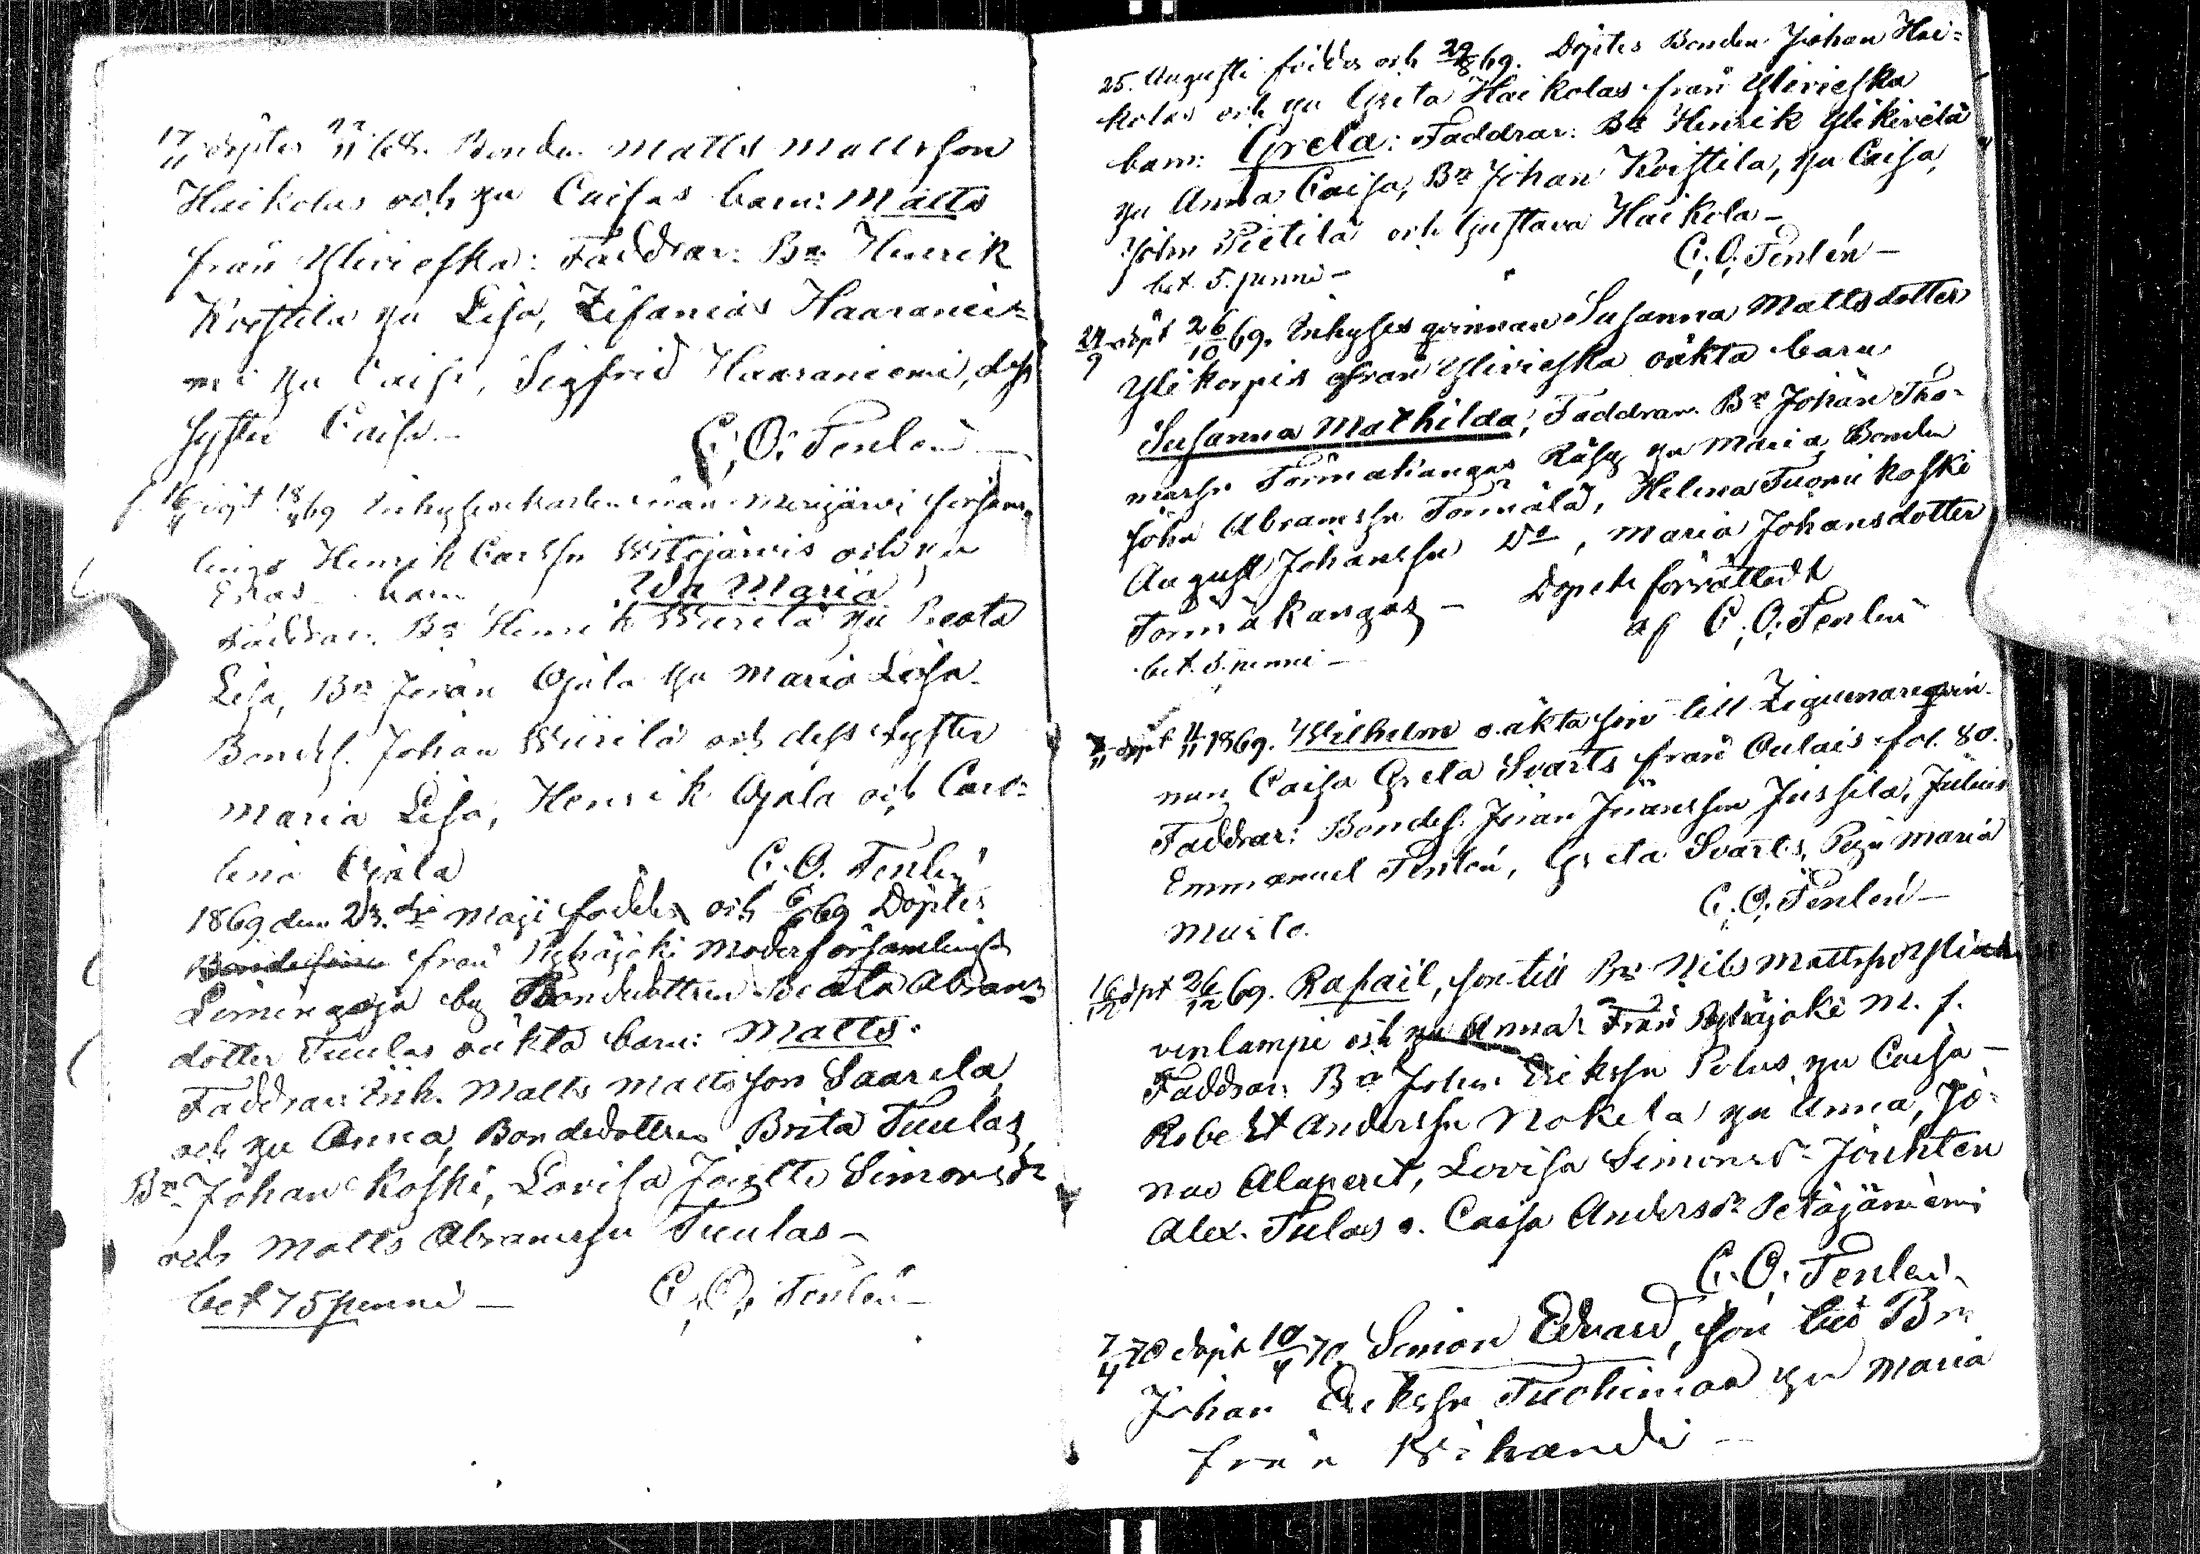 17/11 döptes 22/11 68. Bonden Matts Mattsson
Haikolas och hu Caisas barn: Matts
från Ylivieska: Faddrar: Bn Henrik
Koistila hu Lisa, Zefanias Haaranie=
mi hu Caisa, Sigfrid Haaraniemi, dess
syster Caisa.–
C. O. Fenlén –
f. döpt 18/4 69 Inhysekarlen från Merijärvi försam,
lings Henrik Carlsn Witojärvis och hu
Ericas barn Ida Maria
Faddrar: Bn Henrik Wiirilä hu Beata
Lisa, Bn Jöran Ojala hu Maria Lisa
Bondes. Johan Wiirilä och dess syster
Maria Lisa, Henrik Ojala och Caro=
lina Ojala
C. O. Fenlén
1869 den 23.die Maji foddes och 6/6 69 Döptes
från Pyhäjoki Moderförsamlings
Limingoja by Bondedottren Beata Abrams
dotter Tuulas oäkta barn: Matts.
Faddrar: Inh. Matts Mattsson Saarela
och hu Anna, Bondedottren Brita Tuulas,
Bn Johan Koski, Lovisa Simonsdr
och Matts Abramsn Tuulas –
bet 75 penni –
C. O. Fenlén –
25. Augusti föddes och 29/8 69. Döptes Bonden Johan Hai=
kolas och hu Greta Haikolas från Ylivieska
barn: Greta: Faddrar: Bn Henrik Ylikirilä
hu Anna Caisa, Bn Johan Koistila, hu Caisa,
John Pietilä och Gustava Haikola –
C. O. Fenlén –
bet. 5. penni –
24/9 döpt 26/10 69. Inhyses qvinnan Susanna Mattsdotter
Ylikorpis från Ylivieska oäkta barn
Susanna Mathilda; Faddrar. Bn Johan Tho=
massn Törmäkangas hu Maria, Bonden
John Abramssn Törmälä, Helena Tuomikoski
August Johanssn Do, Maria Johansdotter
Törmäkangas – Dopet förrättadt
af C. O. Fenlén
bet. 5. penni –
döpt 11/11 1869. Wilhelm oäkta son till Zigenareqvin-
nan Caisa Greta Svarts från Oulais fol. 80.
Faddrar: Bondes. Jöran Jöransson Jussila, Julius
Emmanuel Fenlén, Greta Svarts, Pig. Maria
Musto.
C. O. Fenlén –
16/12 döpt 26/12 69. Rafail, son till Bn Nils Mattsson
venlampi och hu Anna: från Pyhäjoki M. f.
Faddrar: Bn John Erikssn Polus hu Caisa –
Robert Anderssn Nokela hu Anna, Jo=
nas Alaperit, Lovisa Simonsdr
Alex. Tulas o. Caisa Andersdr Petäjäniemi
C. O. Fenlén.
7/4 70 döpt 10/4 70 Simon Edvard, son till Bn
Johan Erikssn Tuohimaa hu Maria
från Wihandi –